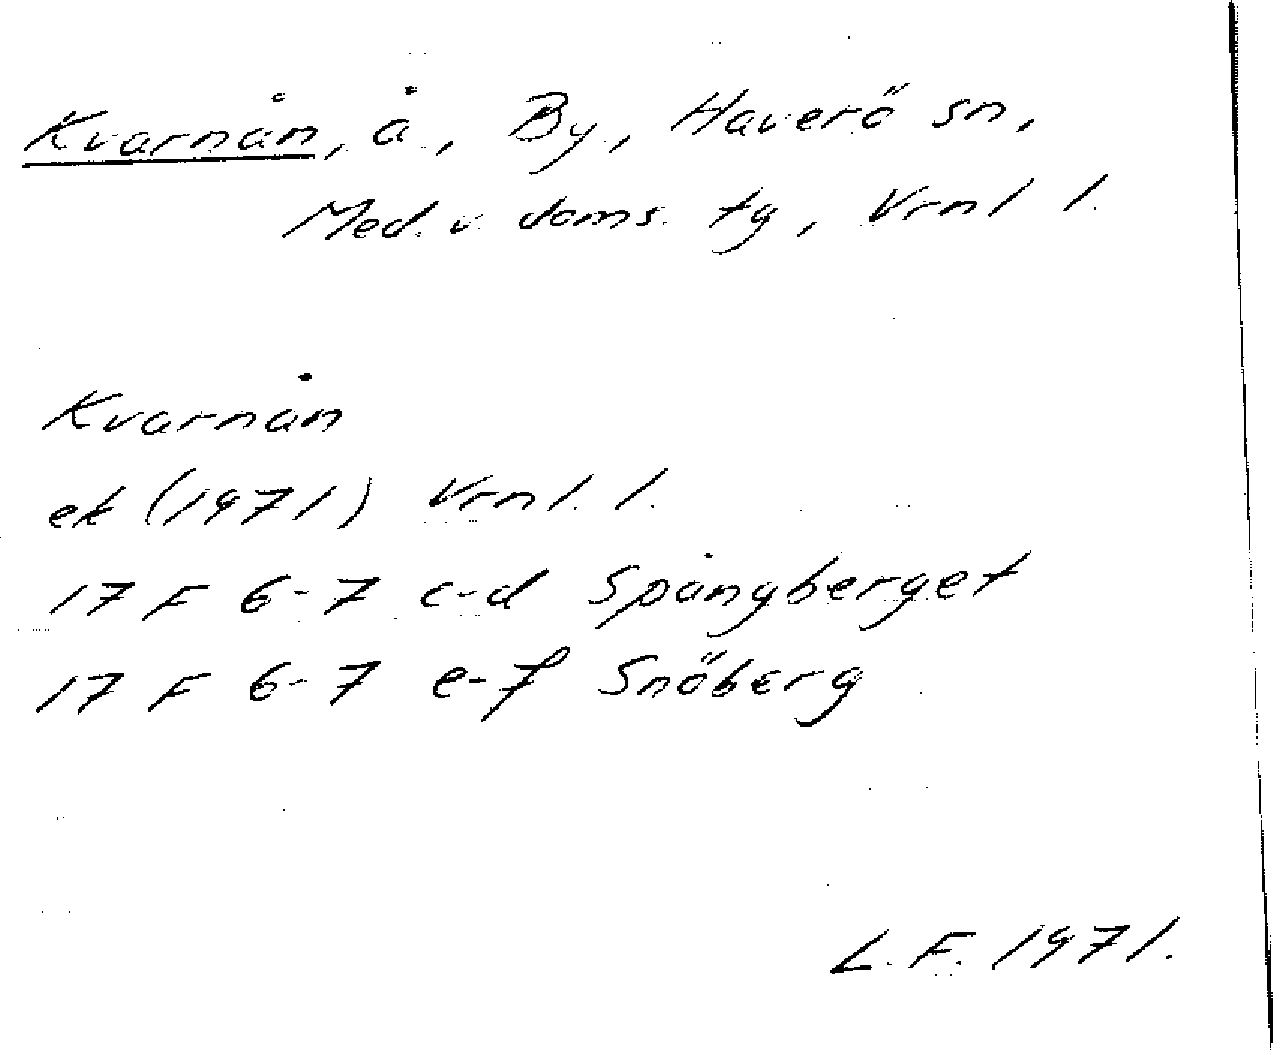 Kvarnån, å, By, Haverö sn,
Med. v. doms. tg, Vrnl l.
Kvarnån
ek (1971) Vrnl. l.
17 F 6-7 c-d Spångberget
17 F 6-7 e-f Snöberg
L. F. 1971.